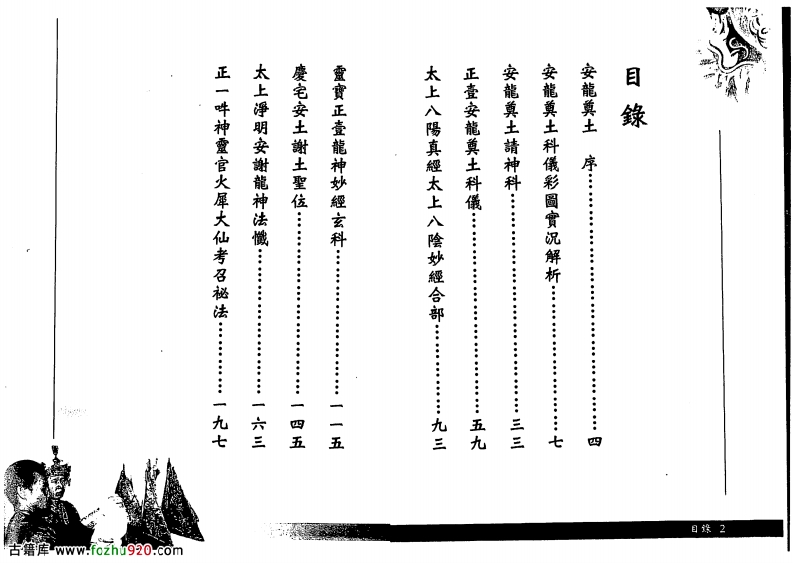 目錄
安龍奠土　序…………………四
安龍奠土科儀彩圖實況解析…………七
安龍奠土請神科…………………三三
正壹安龍奠土科儀…………………五九
太上八陽真經太上八陰妙經合部…………九三
靈寶正壹龍神妙經玄科…………………一一五
慶宅安土謝土聖位…………………一四五
太上淨明安謝龍神法懺…………………一六三
正一吽神靈官火犀大仙考召祕法…………一九七
目錄 2
古籍库 www.fozhu920.com